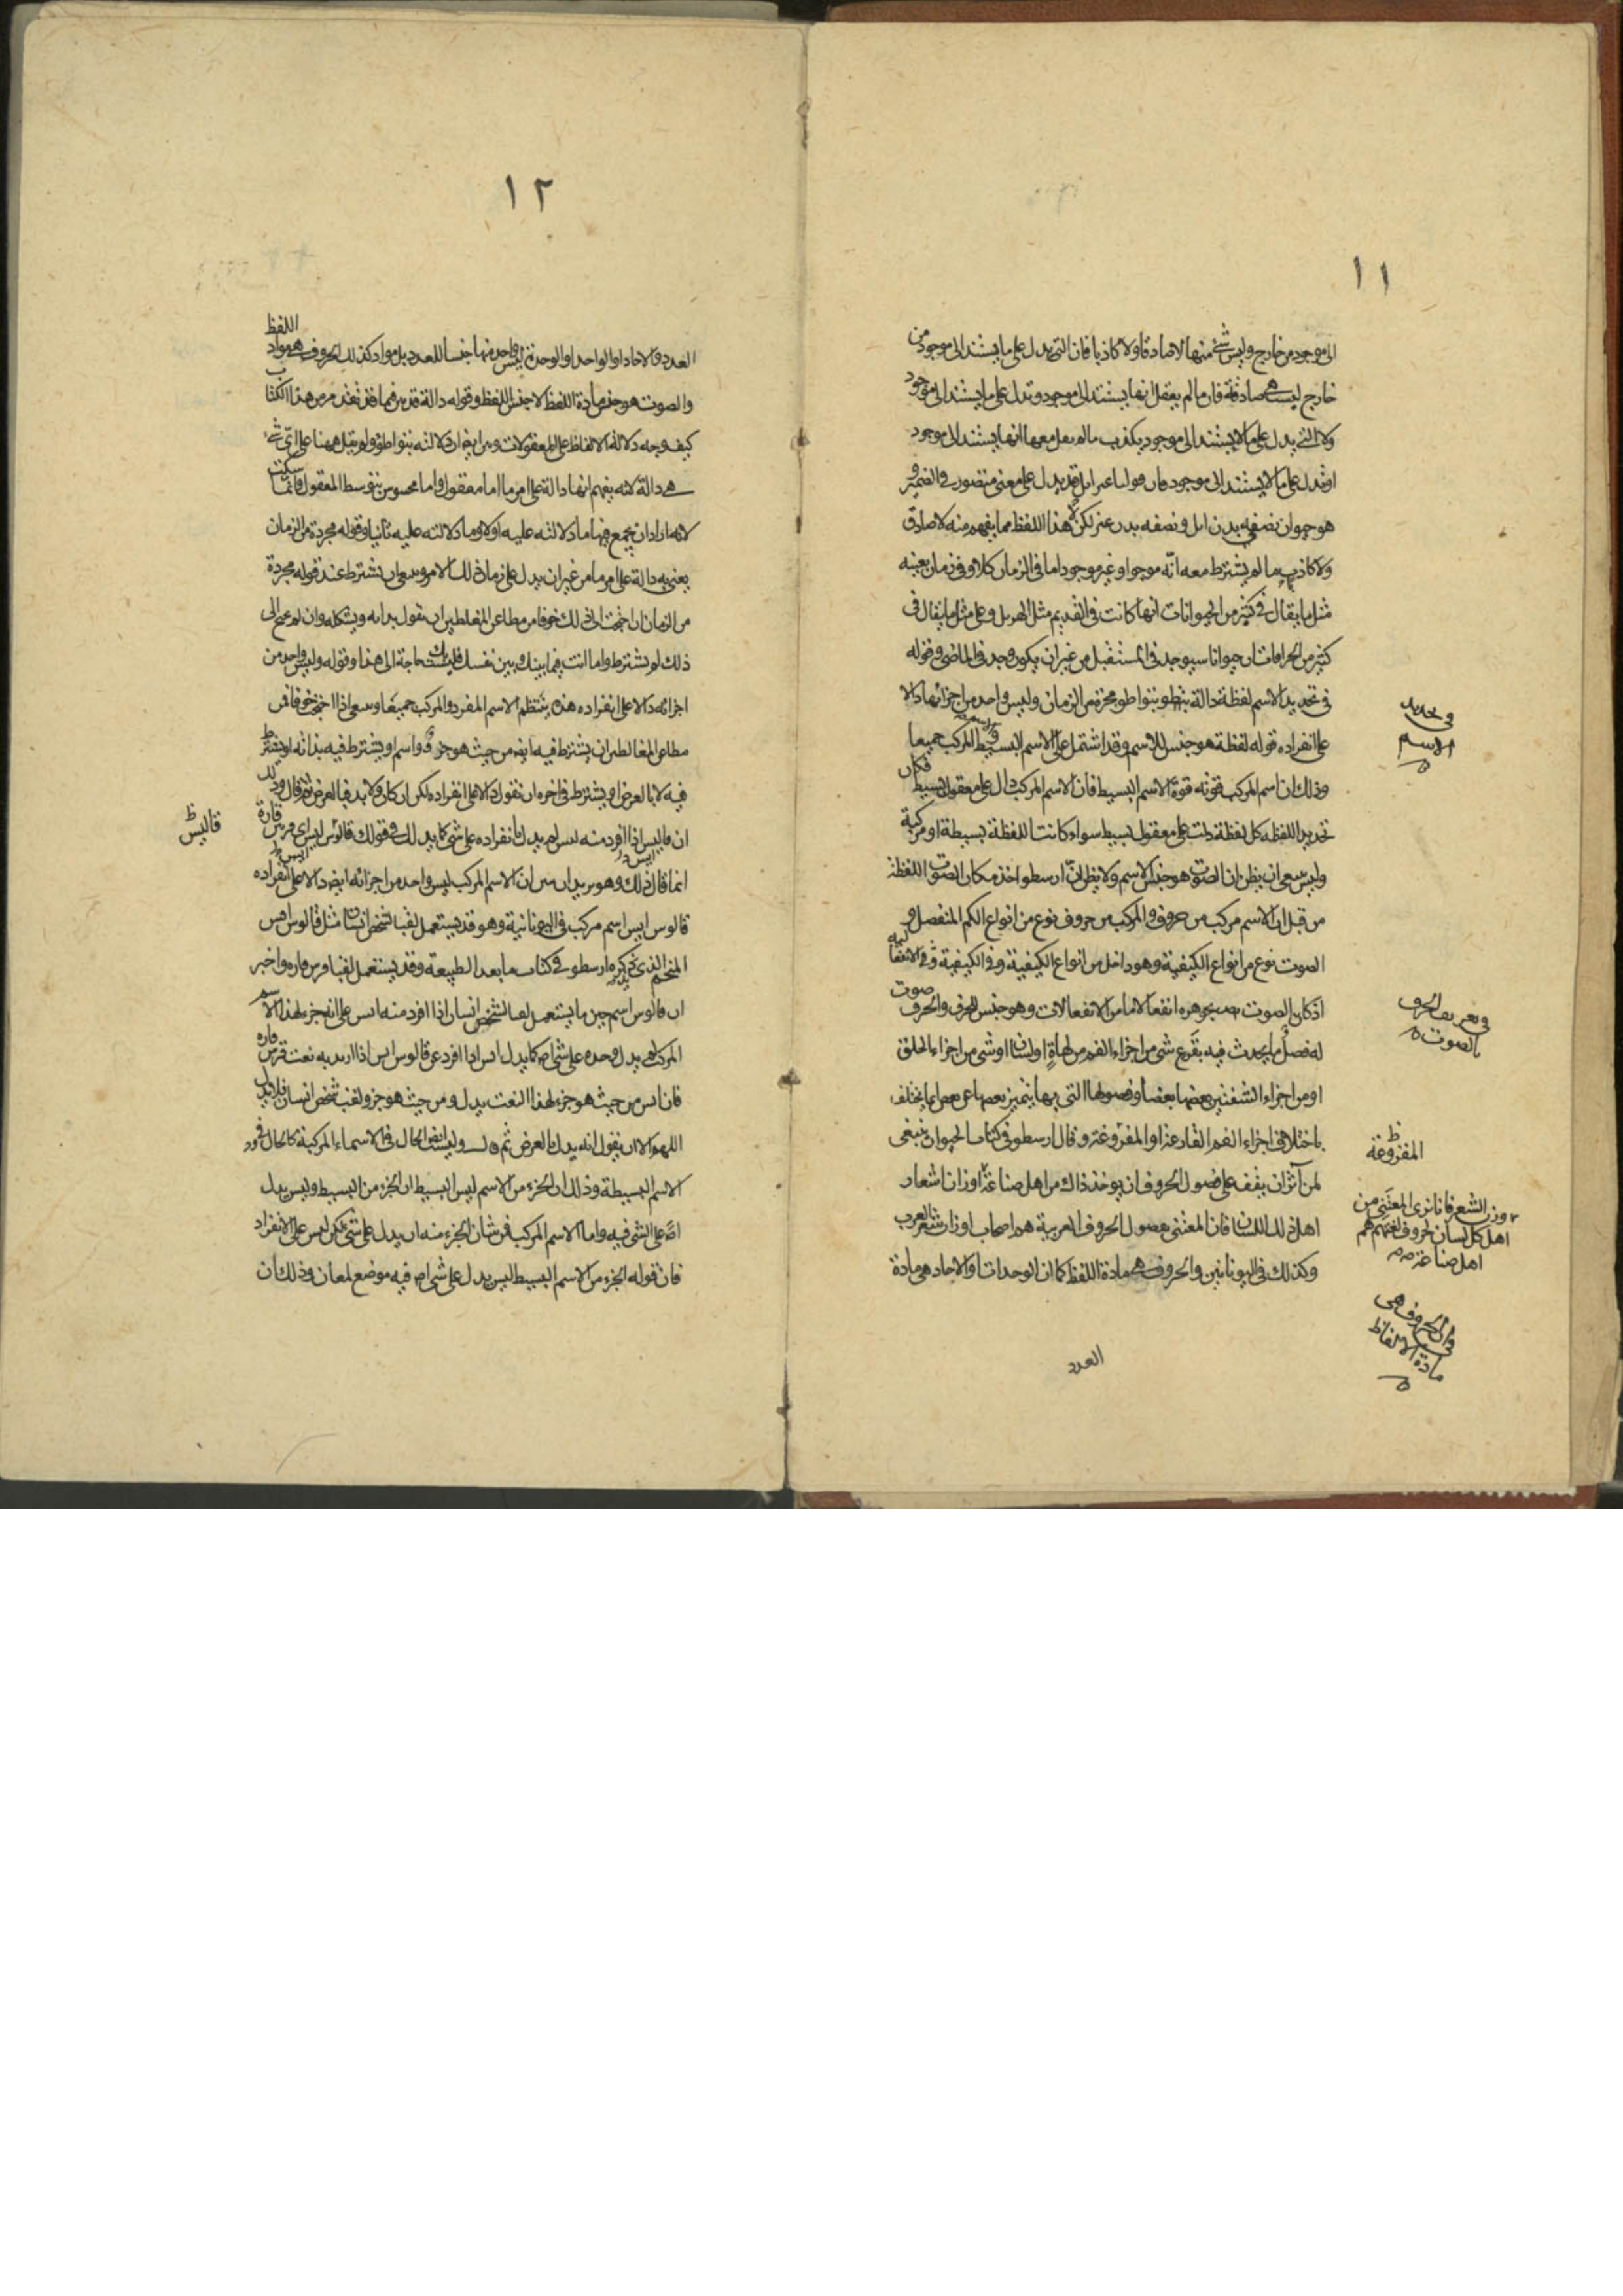 ١١
الى موجود من خارج وليس شئ منها لا صادقا ولا كاذبا فان التى يدل على ما يستند الى موجود من
خارج ليست هى صادقة فان ما لم يعقل انها يستند الى موجود وتدل على ما يستند الى موجود
ولا التى يدل على ما لا يستند الى موجود يكذب ما لم يعقل معها انها يستند الى موجود
او تدل على ما لا يستند الى موجود فان قولنا عنزايل قد يدل على معنى متصور فى الضمير و
هو حيوان نصفه بدن ايل ونصفه بدن عنز لكن هذا اللفظ مما يفهم منه لا صادق
ولا كاذب ما لم يشترط معه انه موجود او غير موجود اما فى الزمان كلا او فى زمان بعينه
مثل ما يقال فى كثير من الحيوانات انها كانت فى القديم مثل وعلى مثل ما يقال فى
كثير من الخرافات ان حيوانا سيوجد فى المستقبل من غير ان يكون وجد فى الماضى وقوله
فى تحديد الاسم لفظة دالة بتواطؤ مجردة من الزمان وليس واحد من اجزائها دالا
على انفراده قوله لفظة هو جنس للاسم وقد اشتمل على الاسم البسيط والمركب جميعا
وذلك ان اسم المركب قوته قوة الاسم البسيط فان الاسم المركب دال على معقول بسيط فكان
تحديد اللفظة كل لفظة دلت على معقول بسيط سواء كانت اللفظة بسيطة او مركبة
وليس ينبغى ان يظن ان الصوت هو جنس الاسم ولا يظن ان ارسطو اخذ مكان الصوت اللفظة
من قبل ان الاسم مركب من حروف والمركب من حروف نوع من انواع الكم المنفصل و
الصوت نوع من انواع الكيفية وهو داخل من انواع الكيفية وفى الكيفية فى الانفعالية
اذ كان الصوت بجوهره انفعالا ما من الانفعالات وهو جنس للحرف والحرف صوت
له فصل ما يحدث فيه بقرع شئ من اجزاء الفم من لهاة او لسان او شئ من اجزاء الحلق
او من اجزاء الشفتين بعضها بعضا وفصولها التى بها يتميز بعضها عن بعض انما يختلف
باختلاف اجزاء الفم القارعة او المقروعة وقال ارسطو فى كتاب الحيوان ينبغى
لمن آثر ان يقف على فصول الحروف ان يوخذ ذاك من اهل صناعة اوزان اشعار
اهل ذلك اللسان فان المعتنى بفصول الحروف العربية هم اصحاب اوزان شعر العرب
وكذلك فى اليونانين والحروف هى مادة اللفظ كما ان الوحدات او الاحاد هى مادة
العدد
فى تحديد
الاسم
فى تعريف الحرف
بالصوت
المقروعة
وزن الشعر فانا نرى المعتنى من
اهل كل لسان لحروف لغتهم هم
اهل صناعة
فى ان الحروف هى
مادة الالفاظ
١٢
العدد والاحاد او الواحد او الوحدة ليس واحد منها جنسا للعدد بل مواد كذلك الحروف هى مواد اللفظ
والصوت هو جنس مادة اللفظ لا جنس اللفظ وقوله دالة قد بين فيما قد تقدم من هذا الكتاب
كيف وجه دلالة الالفاظ على المعقولات وبين ايضا ان دلالته بتواطؤ ولم يقل ههنا على اى شئ
هى دالة لانه يفهم انها دالة على امر ما اما معقول واما محسوس بتوسط المعقول فانما سكت
لانه اراد ان يجمع فيها ما دلالته عليه اولا وما دلالته عليه ثانيا وقوله مجردة من الزمان
يعنى به دالة على امر ما من غير ان يدل على زمان ذلك الامر وينبغى ان يشترط عند قوله مجردة
من الزمان ان احتجت الى ذلك خوفا من مطاعن المغالطين ان يقول بذاته وشكله وان لم تحتج الى
ذلك لم يشترط واما انت فيما بينك وبين نفسك فليست بك حاجة الى هذا وقوله وليس واحد من
اجزائه دالا على انفراده هذه ينتظم الاسم المفرد والمركب جميعا وينبغى اذا احتجت خوفا من
مطاعن المغالطين ان يشترط فيه ايضا من حيث هو جزؤ اسم او يشترط فيه بذاته او يشترط
فيه لا بالعرض او يشترط فى اخره ان تقول دالا على انفراده لكن ان كان ولا بد فبالعرض ثم قال وذلك
ان قالبس اذا افرد منه ابس لم يدل بانفراده على شئ كما يدل فى قولك قالوس ابس اى فرس فاره
انما قال ذلك وهو يريد ان يبين ان الاسم المركب ليس واحد من اجزائه ايضا دالا على انفراده
قالوس ابس اسم مركب فى اليونانية وهو قد يستعمل لقبا لشخص انسان مثل قالوس ابس
المنجم الذى ذكره ارسطو فى كتاب ما بعد الطبيعة وقد يستعمل لقبا لفرس فاره واخبر
ان قالوس اسم حين ما يستعمل لقبا لشخص انسان اذا افرد منه ابس على انه جزء لهذا الاسم
المركب لم يدل وحده على شئ اصلا كما يدل ابس اذا افرد عن قالوس ابس اذا اريد به نعت فرس فاره
فان ابس من حيث هو جزء لهذا النعت يدل ومن حيث هو جزؤ لقب شخص انسان فلا يدل
اللهم الا ان يقول انه يدل بالعرض ثم قال وليست ايضا الحال فى الاسماء المركبة كالحال فى
الاسم البسيطة وذلك ان الجزء من الاسم ليس البسيط ان الجزء من البسيط وليس يدل
اصلا على الشئ فيه واما الاسم المركب فمن شان الجزء منه ان يدل على شئ لكن ليس على الانفراد
فان قوله الجزء من الاسم البسيط ليس يدل على شئ اصلا فيه موضع لمعان وذلك ان
قالبس